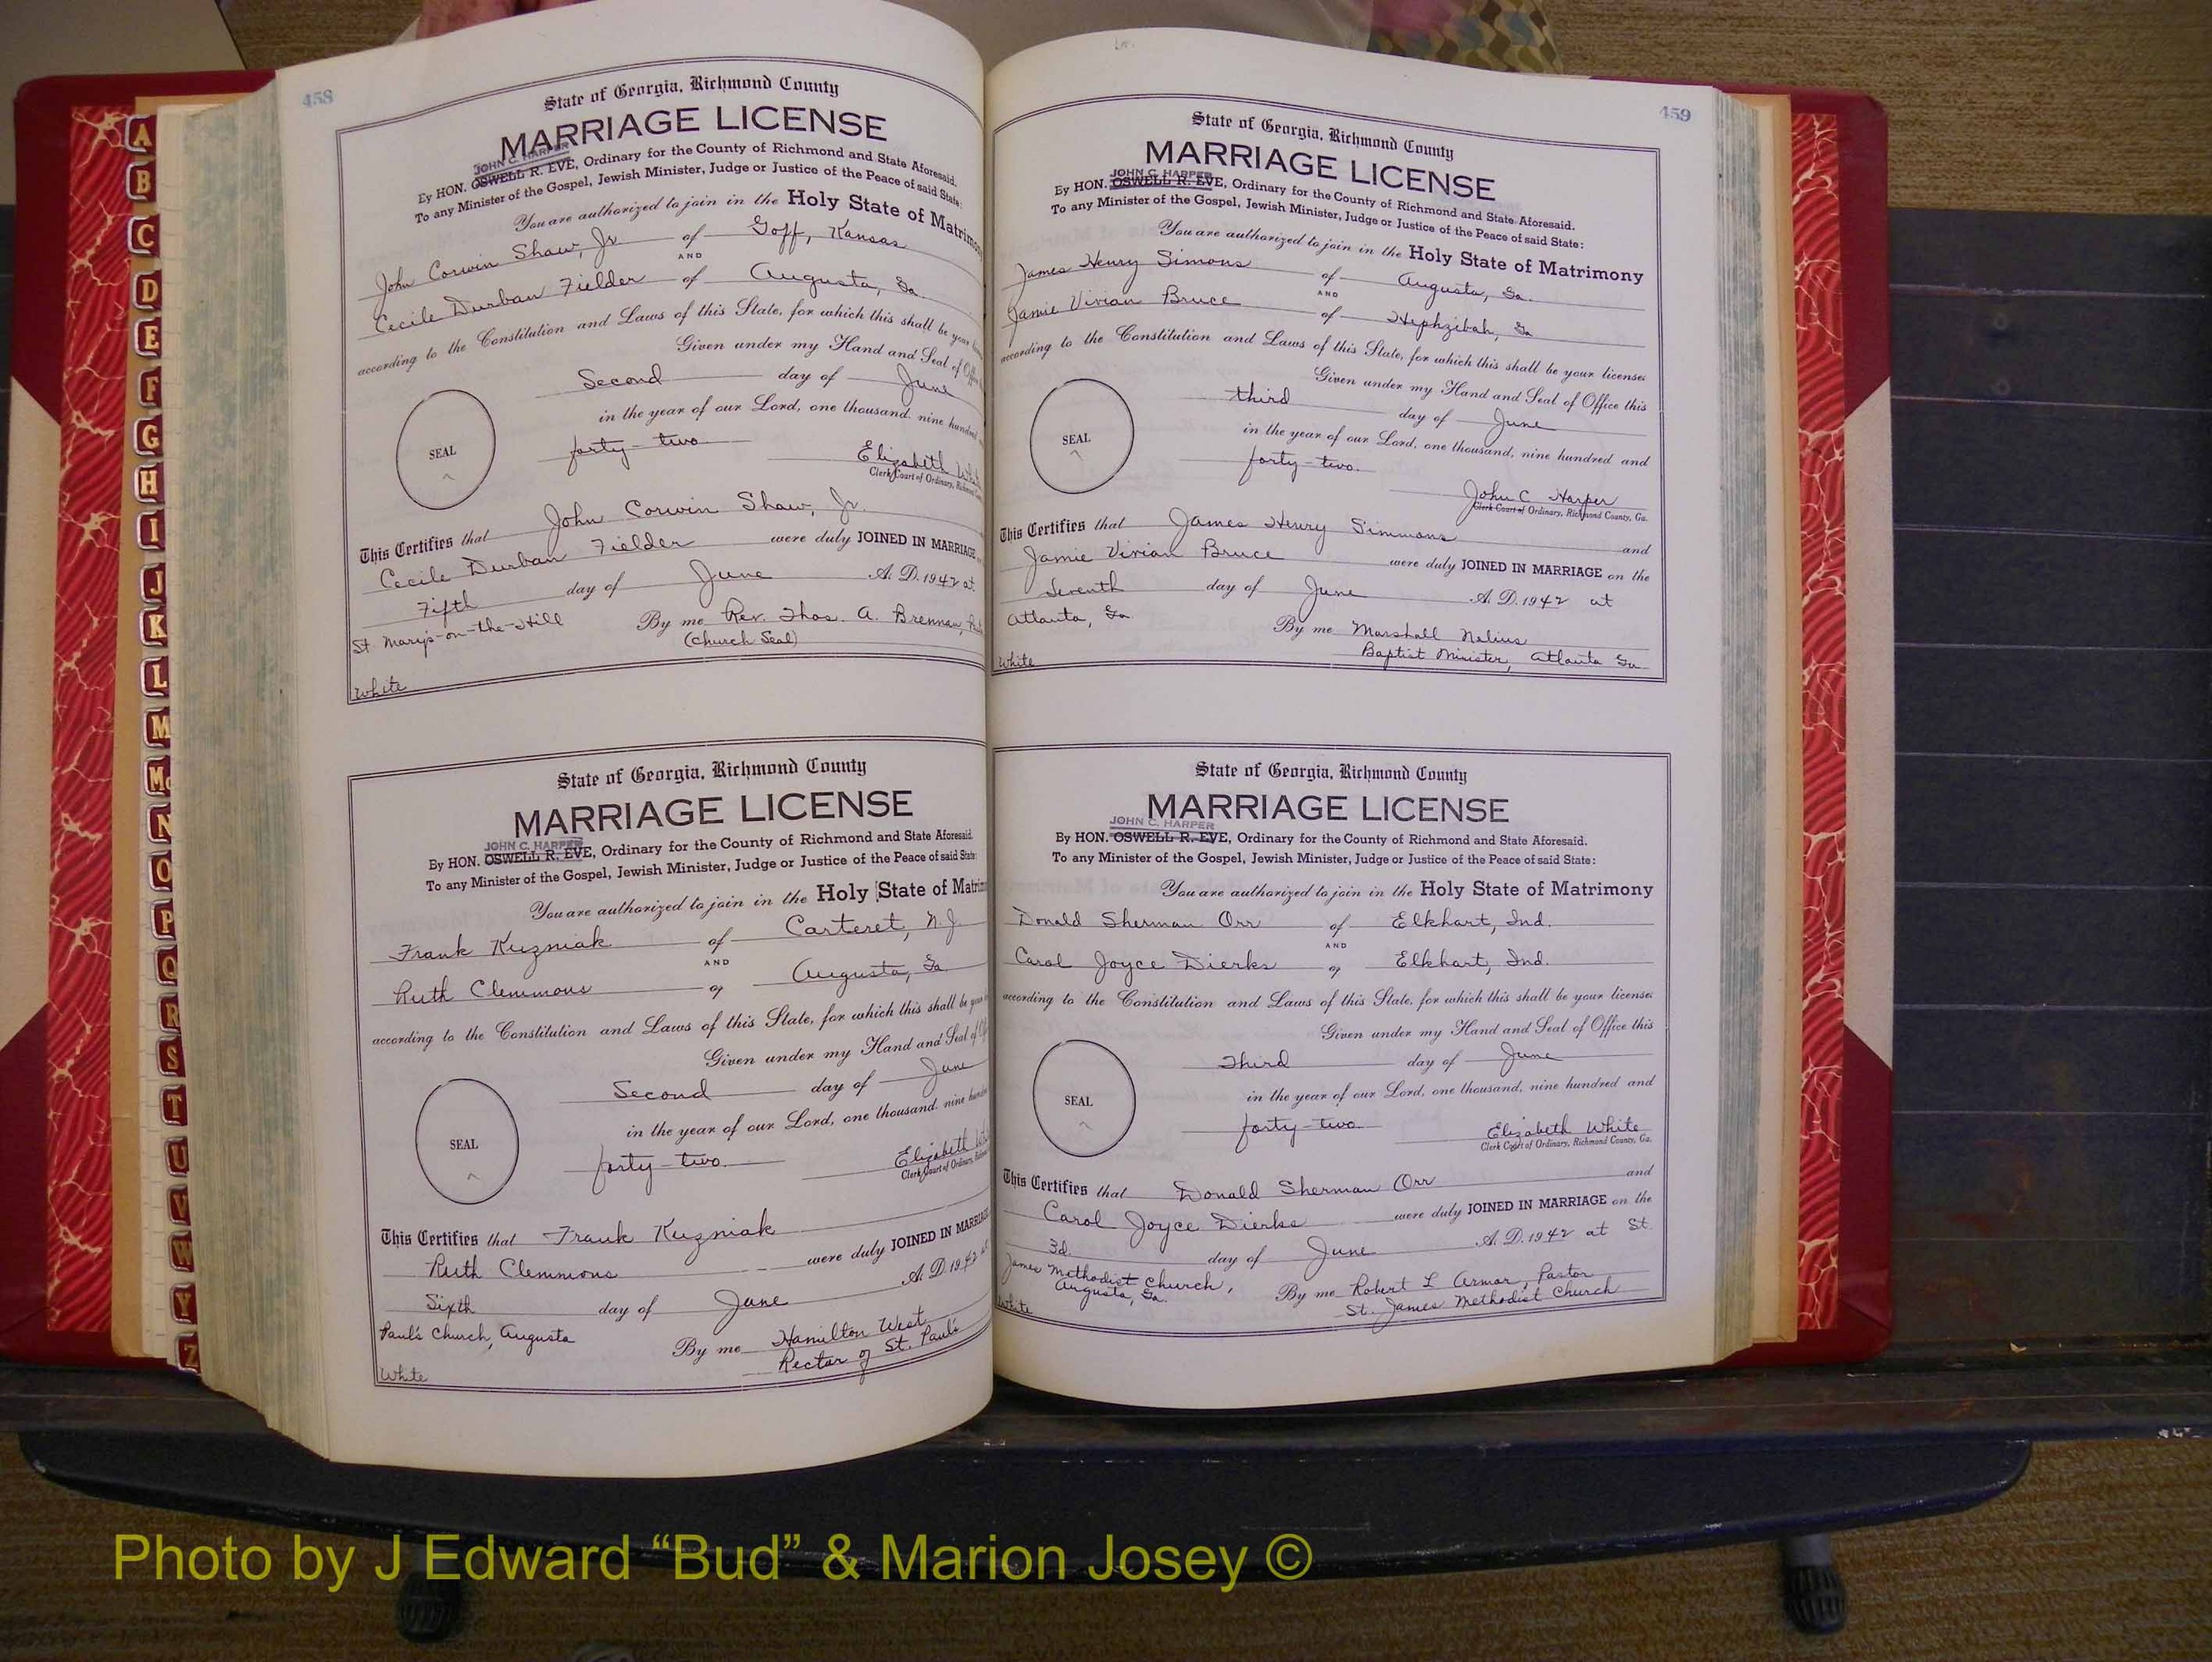 458
State of Georgia, Richmond County
MARRIAGE LICENSE
JOHN C. HARPER
By HON. OSWELL R. EVE, Ordinary for the County of Richmond and State Aforesaid.
To any Minister of the Gospel, Jewish Minister, Judge or Justice of the Peace of said State:
You are authorized to join in the Holy State of Matrimony
John Corwin Shaw, Jr of Goff, Kansas
AND
Cecile Durban Fielder of Augusta, Ga.
according to the Constitution and Laws of this State, for which this shall be your
Given under my Hand and Seal of
Second day of June
in the year of our Lord, one thousand, nine hundred
forty-two
SEAL
Elizabeth
Clerk Court of Ordinary,
This Certifies that John Corwin Shaw, Jr
Cecile Durban Fielder were duly JOINED IN MARRIAGE
Fifth day of June A. D. 1942 at
St Mary's-on-the-Hill By me Rev. Thos. A. Brennan,
(Church Seal)
White
State of Georgia, Richmond County
MARRIAGE LICENSE
JOHN C. HARPER
By HON. OSWELL R. EVE, Ordinary for the County of Richmond and State Aforesaid.
To any Minister of the Gospel, Jewish Minister, Judge or Justice of the Peace of said State:
You are authorized to join in the Holy State of Matrim
Frank Kuzniak of Carteret, N.J
AND
Ruth Clemmons of Augusta, Ga
according to the Constitution and Laws of this State, for which this shall be your
Given under my Hand and Seal of
Second day of June
in the year of our Lord, one thousand, nine hundred
forty-two.
SEAL
Elizabeth
Clerk Court of Ordinary,
This Certifies that Frank Kuzniak
Ruth Clemmons were duly JOINED IN MARRIAGE
Sixth day of June A. D. 1942 at
Paul's Church, Augusta By me Hamilton West
Rector of St. Paul's
White
459
State of Georgia, Richmond County
MARRIAGE LICENSE
JOHN C. HARPER
By HON. OSWELL R. EVE, Ordinary for the County of Richmond and State Aforesaid.
To any Minister of the Gospel, Jewish Minister, Judge or Justice of the Peace of said State:
You are authorized to join in the Holy State of Matrimony
James Henry Simons of Augusta, Ga.
AND
Jamie Vivian Bruce of Hephzibah, Ga
according to the Constitution and Laws of this State, for which this shall be your license:
Given under my Hand and Seal of Office this
third day of June
in the year of our Lord, one thousand, nine hundred and
forty-two.
SEAL
John C Harper
Clerk Court of Ordinary, Richmond County, Ga.
This Certifies that James Henry Simmons and
Jamie Vivian Bruce were duly JOINED IN MARRIAGE on the
Seventh day of June A. D. 1942 at
Atlanta, Ga By me Marshall Nelius
Baptist Minister, Atlanta Ga
White
State of Georgia, Richmond County
MARRIAGE LICENSE
JOHN C. HARPER
By HON. OSWELL R. EVE, Ordinary for the County of Richmond and State Aforesaid.
To any Minister of the Gospel, Jewish Minister, Judge or Justice of the Peace of said State:
You are authorized to join in the Holy State of Matrimony
Donald Sherman Orr of Elkhart, Ind.
AND
Carol Joyce Dierks of Elkhart, Ind.
according to the Constitution and Laws of this State, for which this shall be your license:
Given under my Hand and Seal of Office this
Third day of June
in the year of our Lord, one thousand, nine hundred and
forty-two
SEAL
Elizabeth White
Clerk Court of Ordinary, Richmond County, Ga.
This Certifies that Donald Sherman Orr and
Carol Joyce Dierks were duly JOINED IN MARRIAGE on the
3d. day of June A. D. 1942 at St.
James Methodist Church,
Augusta, Ga. By me Robert L Armor, Pastor
St. James Methodist Church
White
A
B
C
D
E
F
G
H
I
J
K
L
M
Mc
N
O
P
Q
R
S
T
U
V
W
Y
Z
Photo by J Edward “Bud” & Marion Josey ©